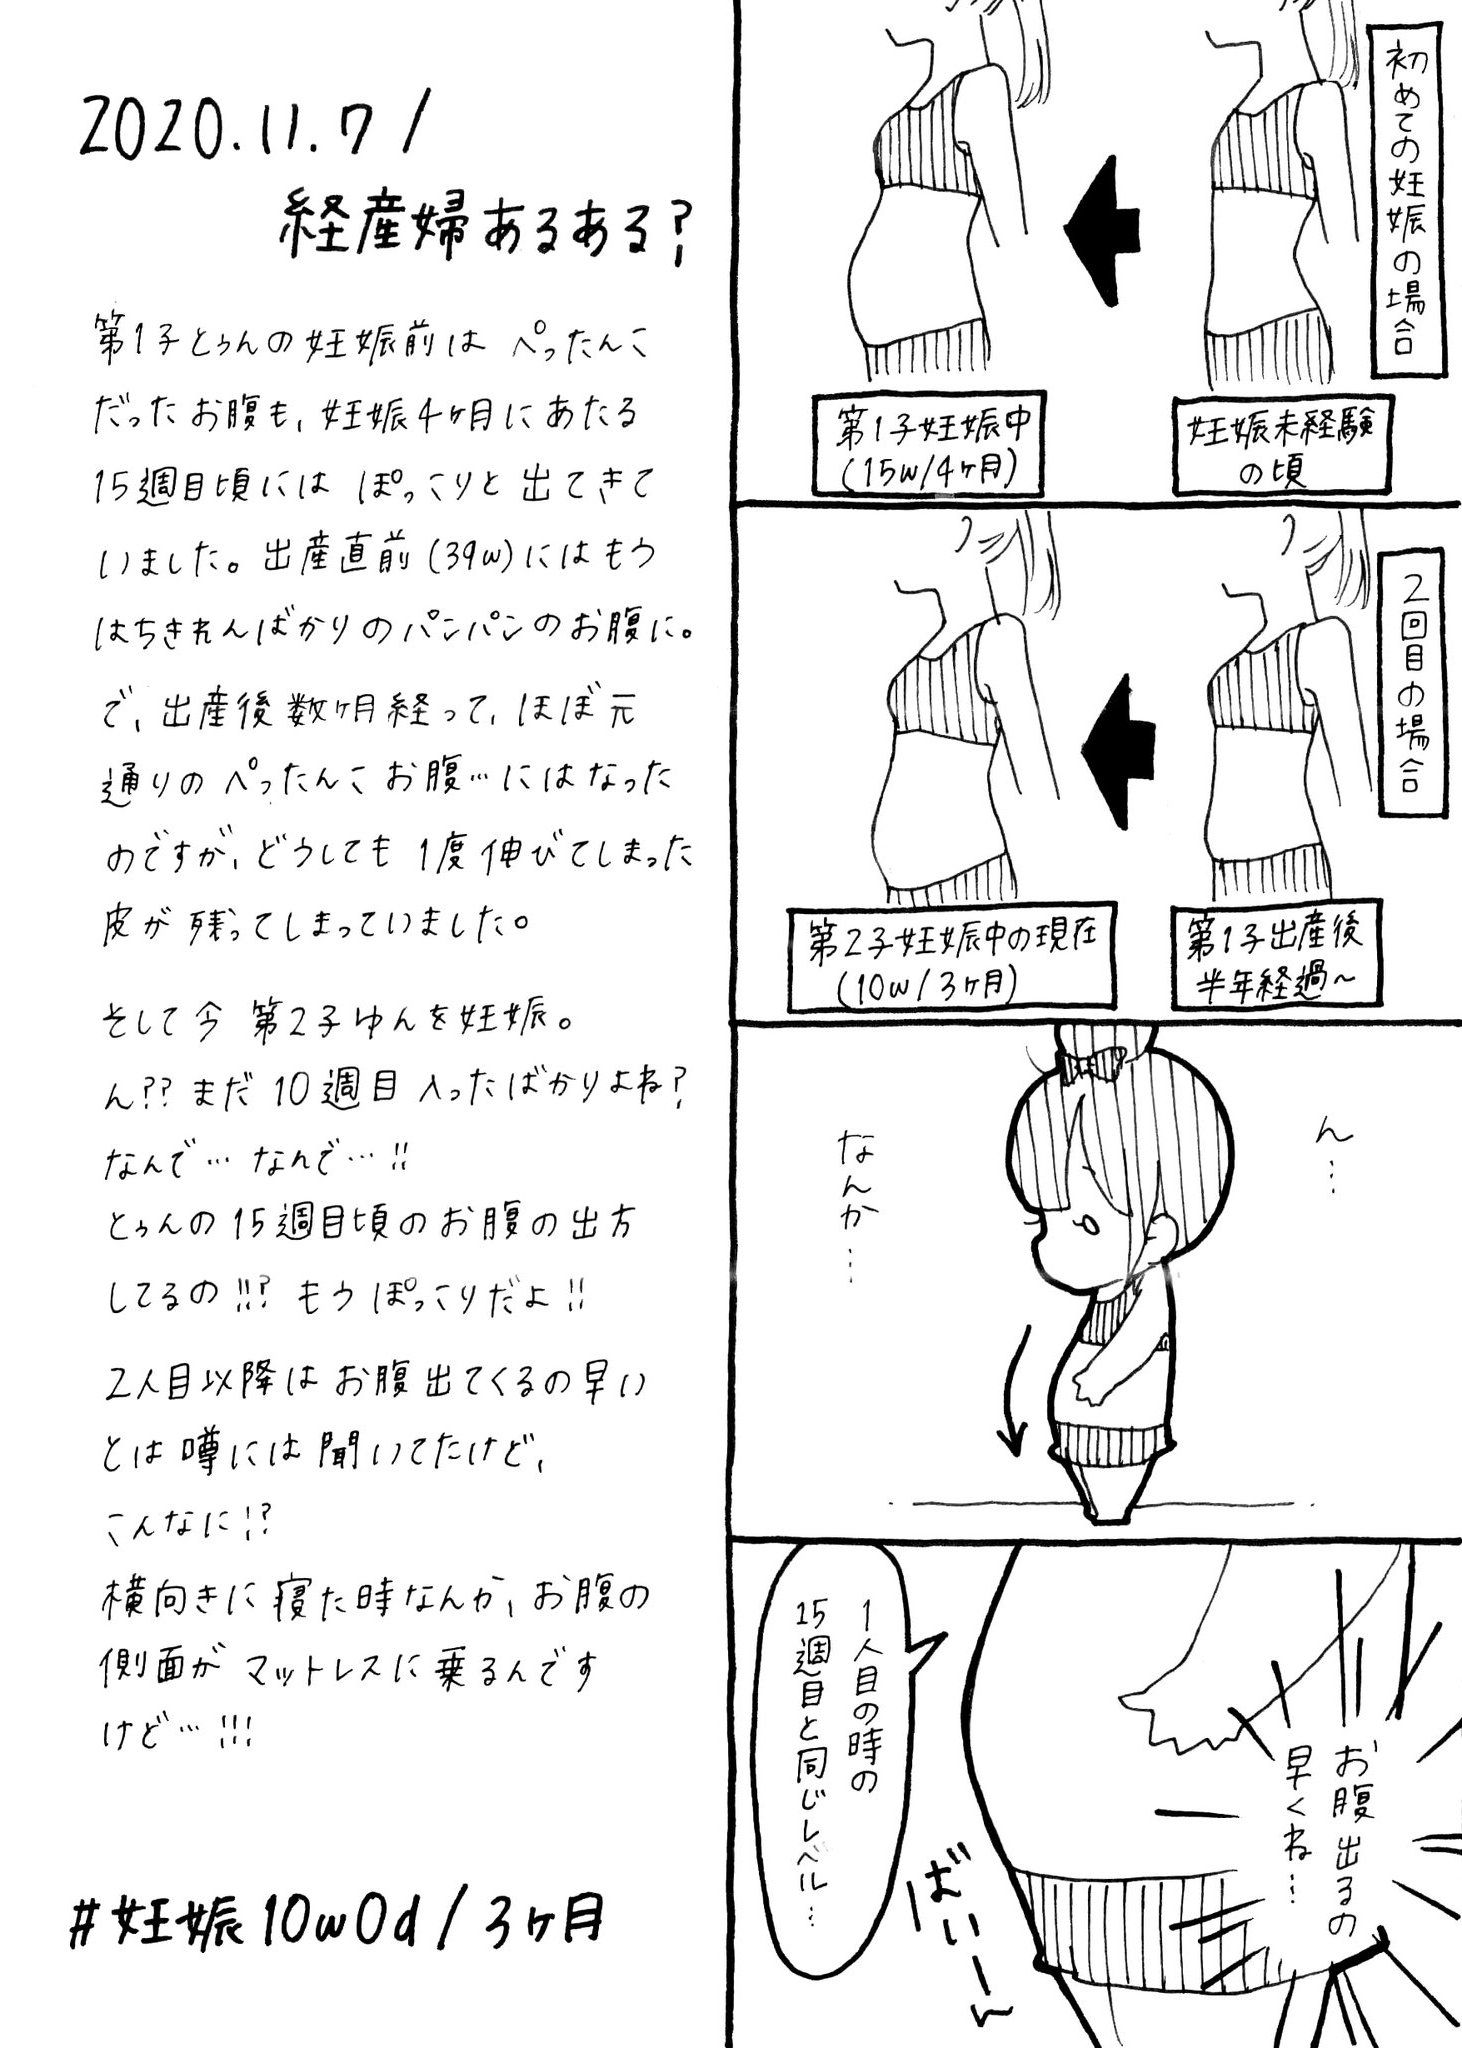 2020.11.7/
経産婦あるある?
第1子とぅんの妊娠前は ぺったんこ
だったお腹も、妊娠4ヶ月にあたる
15週目頃には ぽっこりと 出てきて
いました。出産直前(39w)にはもう
はちきれんばかりのパンパンのお腹に。
で、出産後数ヶ月経って、ほぼ元
通りの ぺったんこ お腹…にはなった
のですが、どうしても 1度伸びてしまった
皮が 残ってしまっていました。
そして今 第2子ゆんを妊娠。
ん??まだ 10週目 入ったばかりよね?
なんで… なんで…!!
とぅんの15週目頃のお腹の出方
してるの!!? もうぽっこりだよ!!
2人目以降は お腹出てくるの早い
とは噂には聞いてたけど、
こんなに!?
横向きに寝た時なんか、お腹の
側面が マットレスに乗るんです
けど…!!!
#妊娠10w0d/3ヶ月
初めての妊娠の場合
妊娠未経験
の頃
第1子妊娠中
(15w/4ヶ月)
2回目の場合
第1子出産後
半年経過~
第2子妊娠中の現在
(10w/3ヶ月)
ん…
なんか……
お腹出るの
早くね…
ばいーん
1人目の時の
15週目と同じレベル…